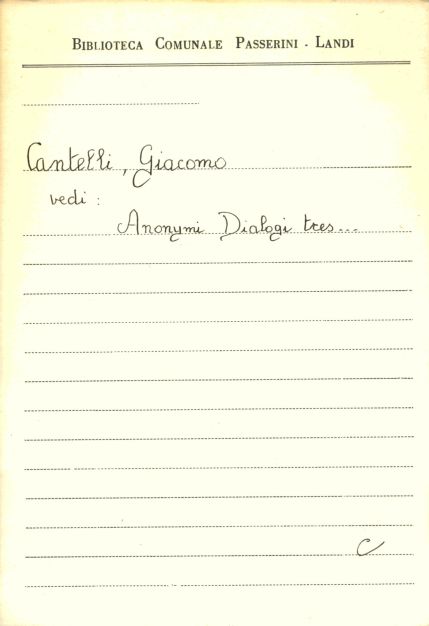 BIBLIOTECA COMUNALE PASSERINI - LANDI
Cantelli, Giacomo
vedi :
Anonymi Dialogi tres...
C